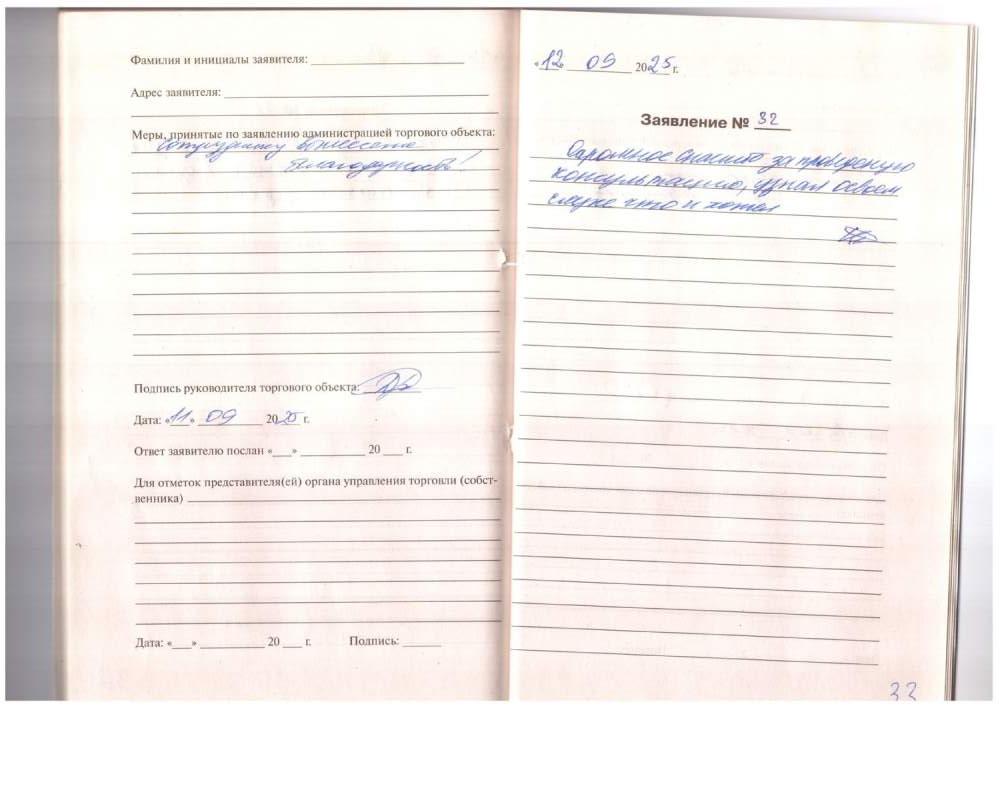 Фамилия и инициалы заявителя:
Адрес заявителя:
Меры, принятые по заявлению администрацией торгового объекта:
Сотруднику вынесена
благодарность!
Подпись руководителя торгового объекта:
Дата: «11» 09 2025 г.
Ответ заявителю послан «___» ______ 20 ___ г.
Для отметок представителя(ей) органа управления торговли (собст-
венника)
Дата: «___» ______ 20 ___ г. Подпись: ______
«12» 09 2025 г.
Заявление № 32
Огромное спасибо за проведеную
консультацию, узнал о своем
слухе что и хотел
33